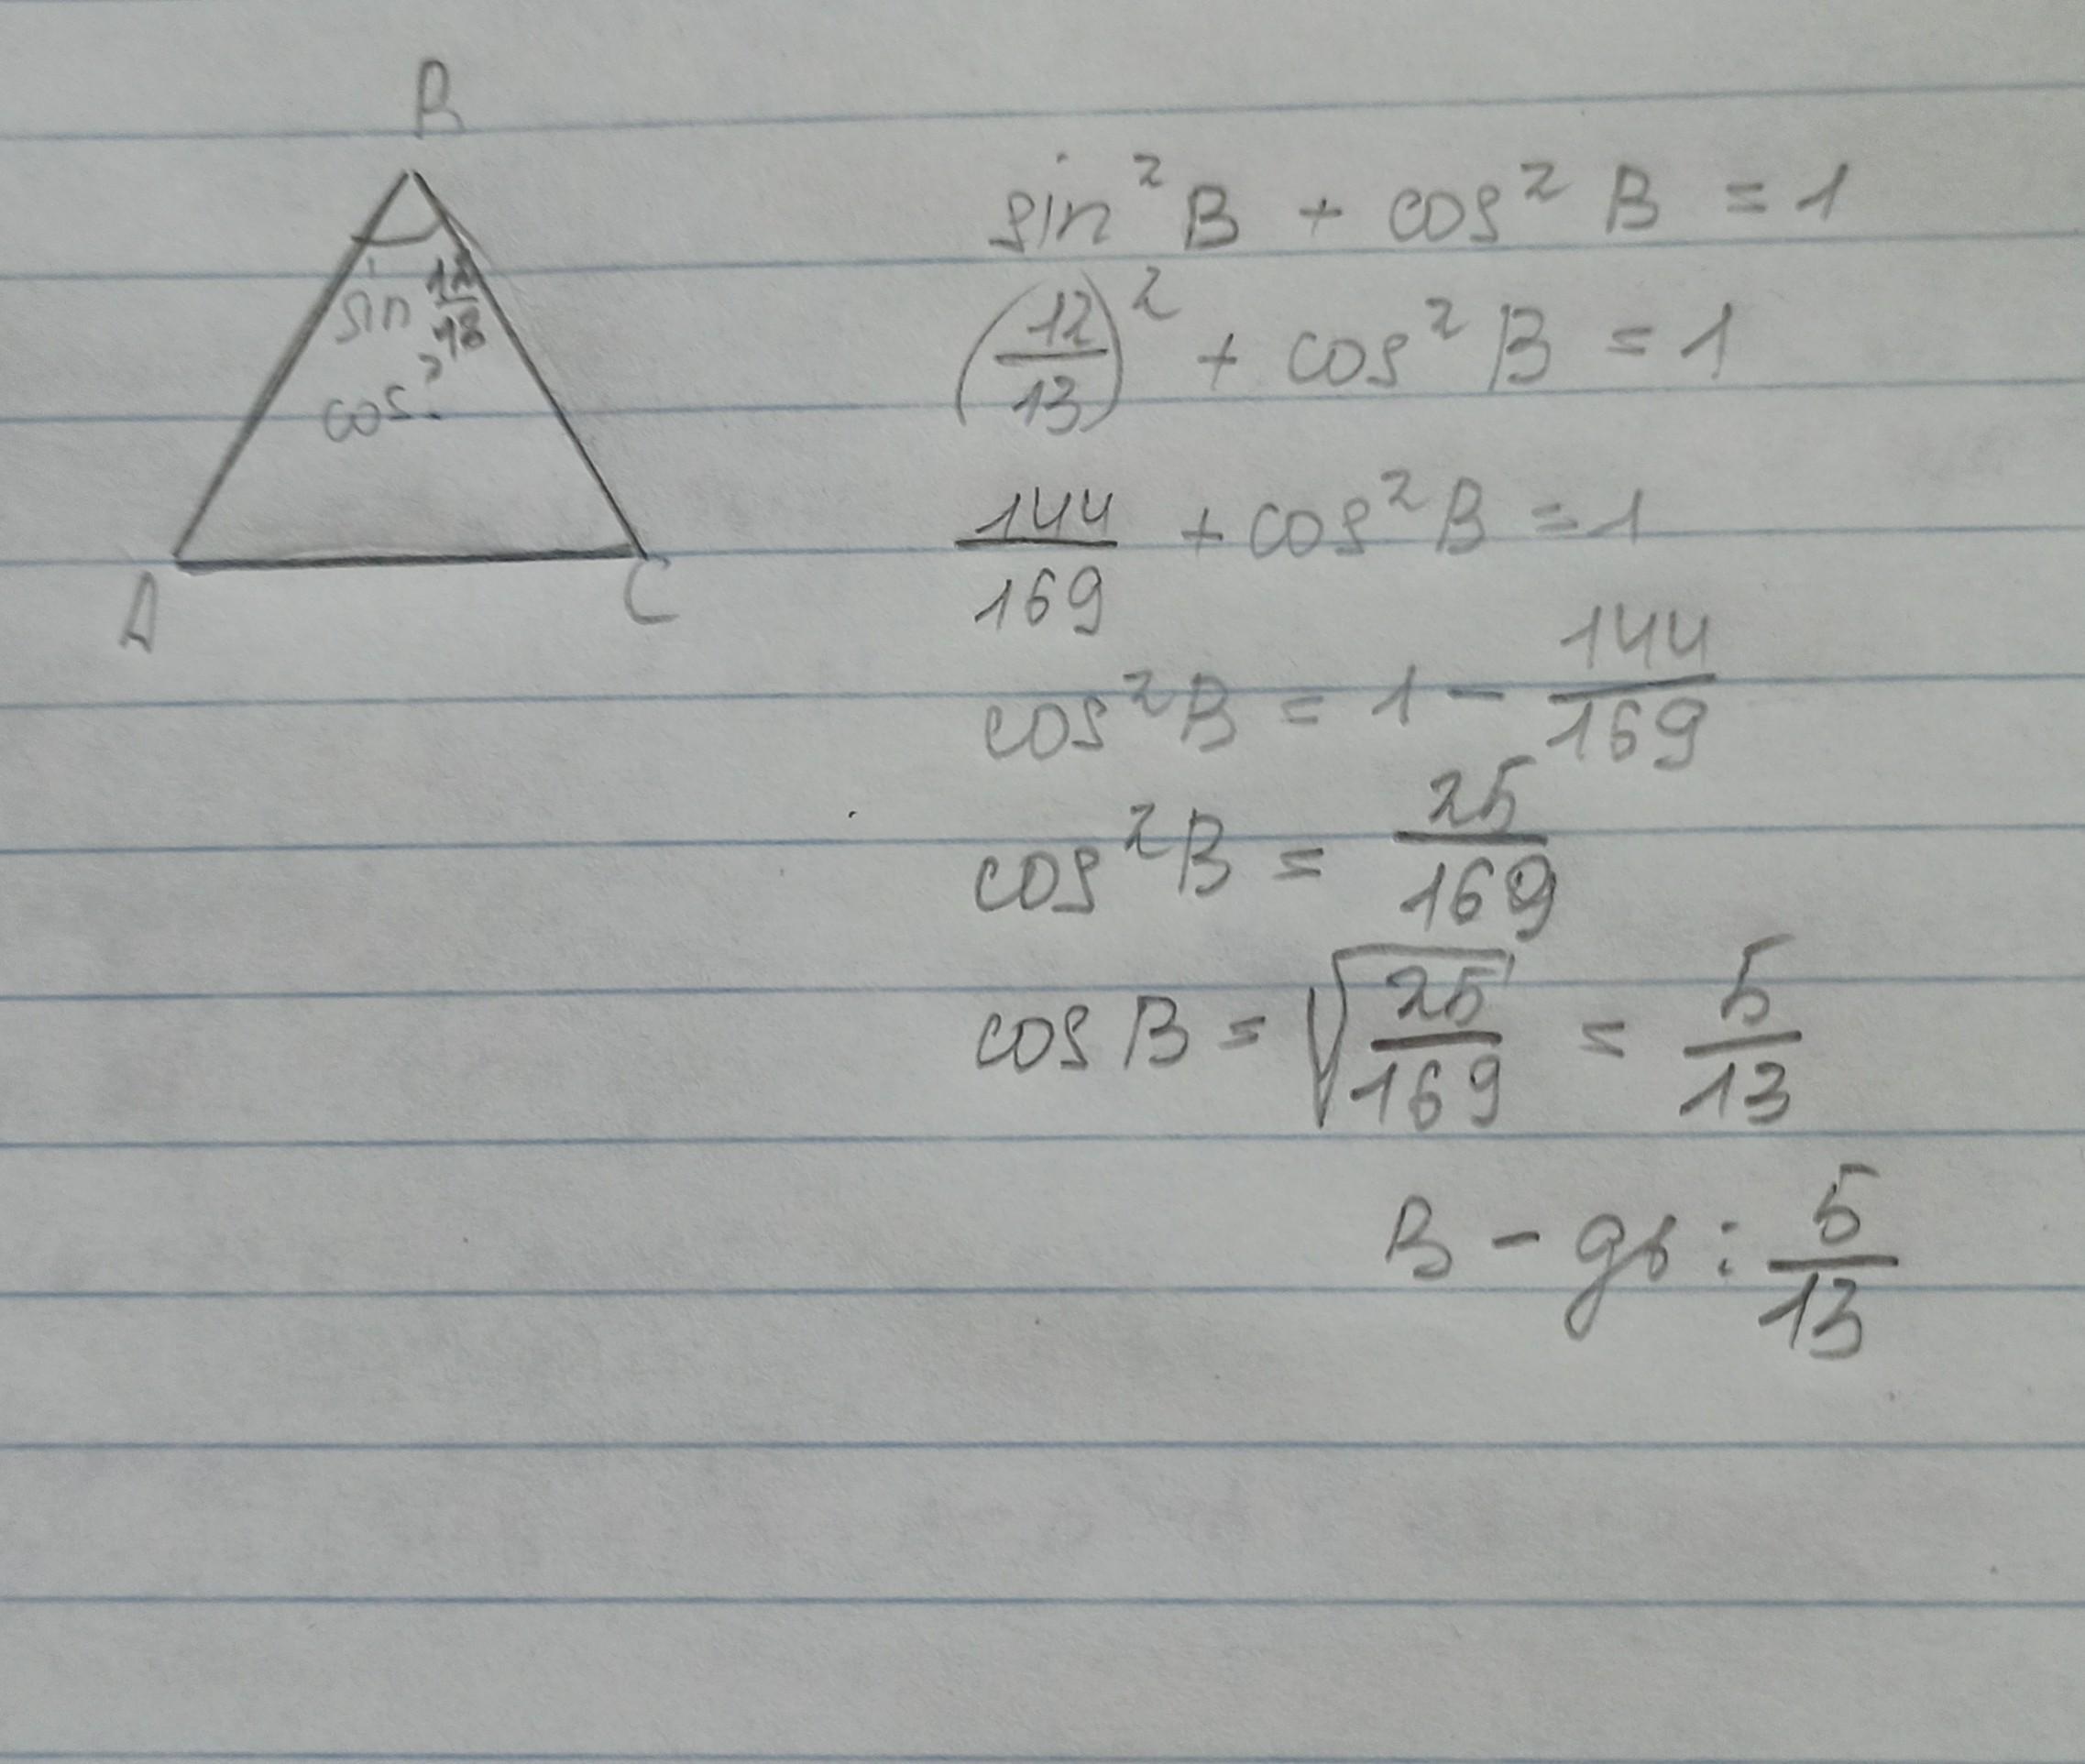 B
sin 12/13
cos ?
A C
sin² B + cos² B = 1
(12/13)² + cos² B = 1
144/169 + cos² B = 1
cos² B = 1 - 144/169
cos² B = 25/169
cos B = √(25/169) = 5/13
В - дь : 5/13